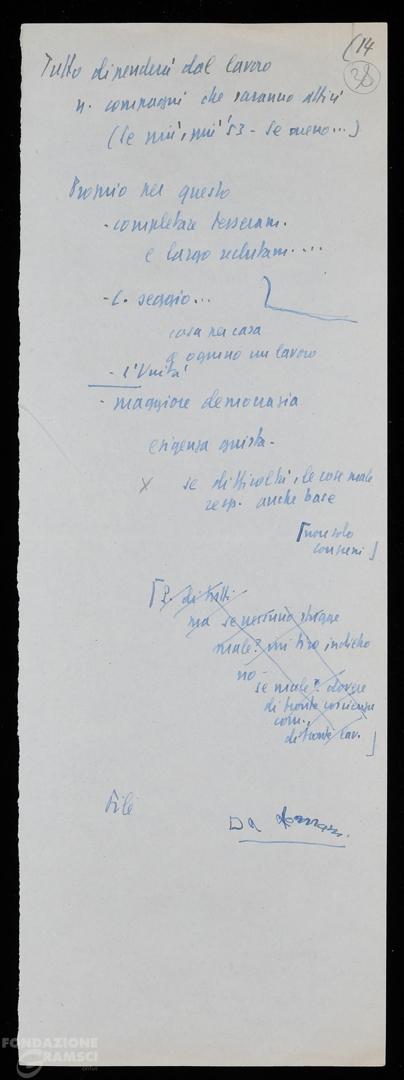 (14
38
Tutto dipenderà dal lavoro
n. compagni che saranno attivi
(se più, più '53 - se meno...)
Proprio per questo
- completare tesseram.
e largo reclutam....
- C. seggio...
casa per casa
a ognuno un lavoro
- l'Unità
- maggiore democrazia
esigenza giusta -
x se difficoltà, le cose male
resp. anche base
[non solo
]
[P. di tutti
ma se nessuno
male? mi tiro indietro
no -
se male? dovere
di fronte coscienza
com.,
di fronte lav.
]
Da domani.
FONDAZIONE
GRAMSCI
onlus